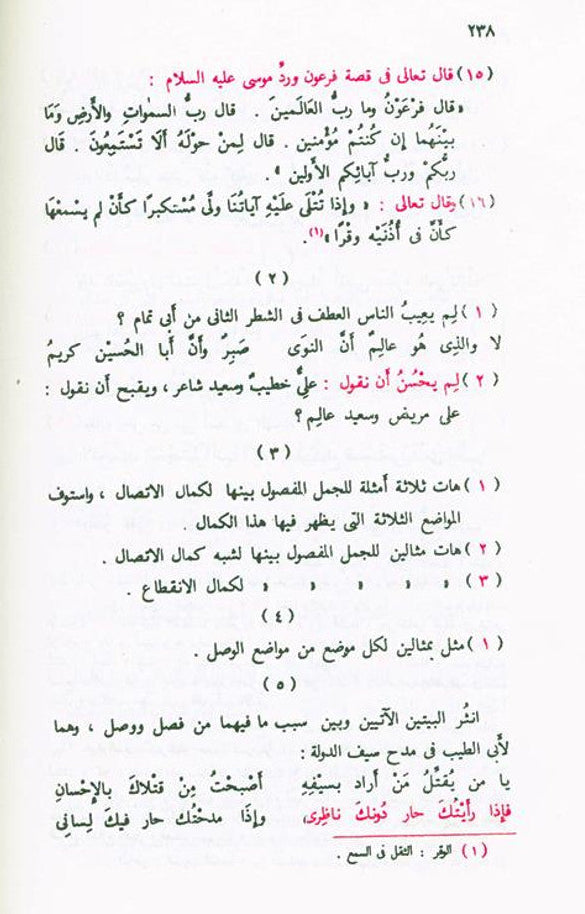 ٢٣٨
(١٥) قال تعالى فى قصة فرعون وردُّ موسى عليه السلام :
« قال فرْعَوْنُ وما ربُّ العَالَمينَ . قال ربُّ السمٰواتِ والأَرضِ وَمَا
بيْنَهُما إن كُنتُمْ مُؤْمنين . قال لِمنْ حوْلَهُ أَلَا تَسْتَمِعُونَ . قال
ربُّكمْ وربُّ آبائِكم الأَولين » .
(١٦) وقال تعالى : « وإذا تُتْلَى علَيْهِ آياتُنَا ولَّى مُسْتكبرًا كأَنْ لم يسْمعْهَا
كأَنَّ فى أُذُنَيْه وقْرًا »(١).
(٢)
(١) لِم يعِيبُ الناس العطف فى الشطر الثانى من أَبى تمام ؟
لا والذِى هُو عالِمٌ أَنَّ النوَى صَبِرٌ وأَنَّ أَبا الحُسيْن كريمُ
(٢) لِم يحْسُنُ أَن نقول : علىٌّ خطيبٌ وسعيد شاعر ، ويقبح أَن نقول :
على مريض وسعيد عالِم ؟
(٣)
(١) هات ثلاثة أَمثلة للجمل المفصول بينها لكمال الاتصال ، واستوف
المواضع الثلاثة التى يظهر فيها هذا الكمال .
(٢) هات مثالين للجمل المفصول بينها لشبه كمال الاتصال .
(٣) » » » » » لكمال الانقطاع .
(٤)
(١) مثل بمثالين لكل موضع من مواضع الوصل .
(٥)
انثُر البيتين الآتيين وبين سبب ما فيهما من فصل ووصل ، وهما
لأَبى الطيب فى مدح سيف الدولة :
يا من يُقتِّلُ مَنْ أَراد بسيْفِهِ أَصْبحْتُ مِن قتْلاكَ بالإِحْسانِ
فإذا رأَيْتُكَ حار دُونكَ ناظِرى، وإذَا مدحْتُك حار فيكَ لِسانِى
(١) الوقر : الثقل فى السمع .